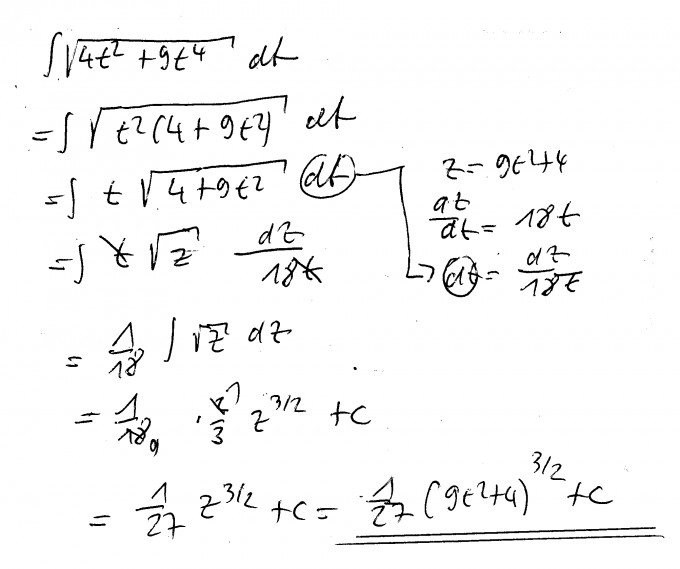 ∫√(4t² + 9t⁴) dt
= ∫ √(t²(4 + 9t²)) dt
= ∫ t √(4 + 9t²) dt
z = 9t²+4
dz/dt = 18t
→ dt = dz/18t
= ∫ t √z dz/18t
= 1/18 ∫ √z dz
= 1/18 9 · 2/3 1 z^3/2 + c
= 1/27 z^3/2 + c = 1/27 (9t²+4)^3/2 + c